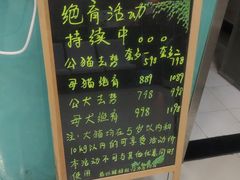 绝育活动
持续中。。。
套多一 套多二
公猫去势 598 798
母猫绝育 889 1089
公犬去势 798 998
母犬绝育 998 1198
注：犬猫均在5岁以内，
10kg以内的可享受活动价
本活动不可与其他优惠同时
使用